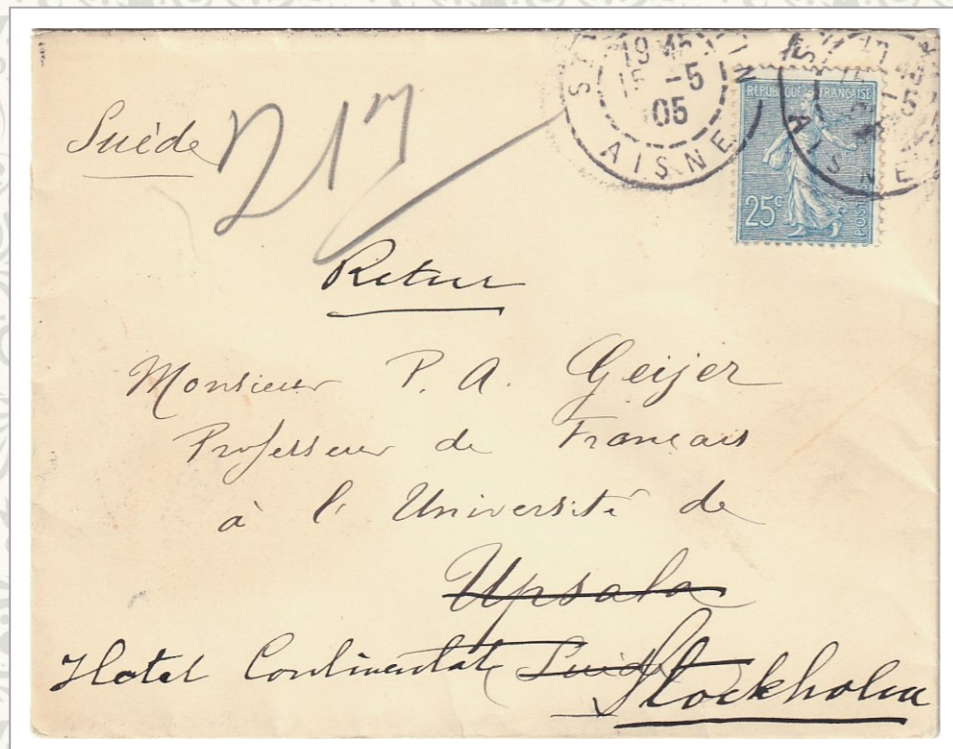 19 45
15 -5
05
AISNE
AISNE
REPUBLIQUE FRANÇAISE
25c
Suède
213
Retur
Monsieur P. A. Geijer
Professeur de Francais
à l'Université de
Upsala
Hotel Continental Suède Stockholm